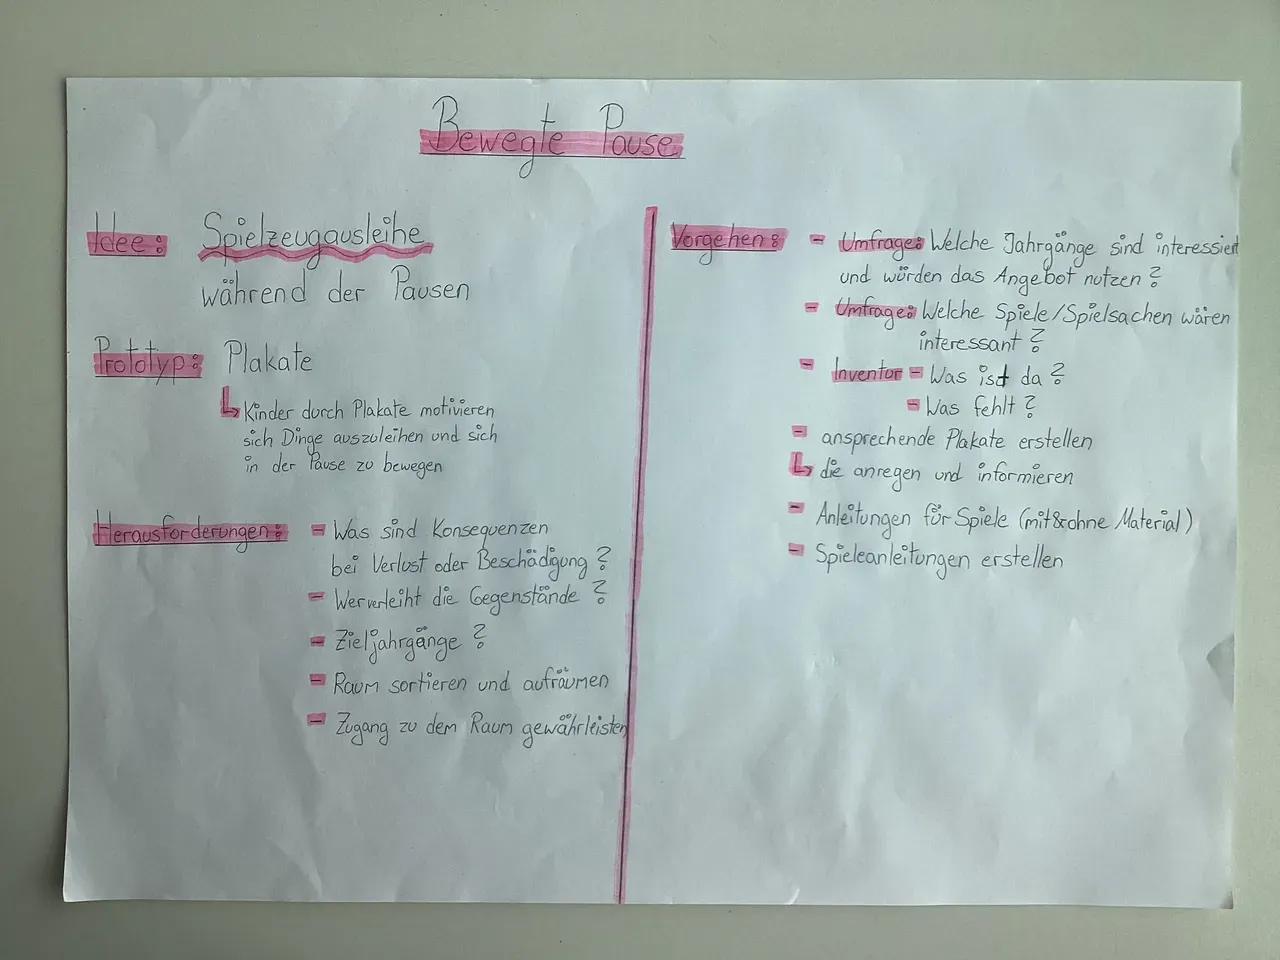 Bewegte Pause
Idee: Spielzeugausleihe
während der Pausen
Prototyp: Plakate
Kinder durch Plakate motivieren
sich Dinge auszuleihen und sich
in der Pause zu bewegen
Herausforderungen: - Was sind Konsequenzen
bei Verlust oder Beschädigung?
- Wer verleiht die Gegenstände?
- Zieljahrgänge?
- Raum sortieren und aufräumen
- Zugang zu dem Raum gewährleisten
Vorgehen: - Umfrage: Welche Jahrgänge sind interessiert
und würden das Angebot nutzen?
- Umfrage: Welche Spiele/Spielsachen wären
interessant?
- Inventar - Was ist da?
- Was fehlt?
- ansprechende Plakate erstellen
die anregen und informieren
- Anleitungen für Spiele (mit & ohne Material)
- Spieleanleitungen erstellen